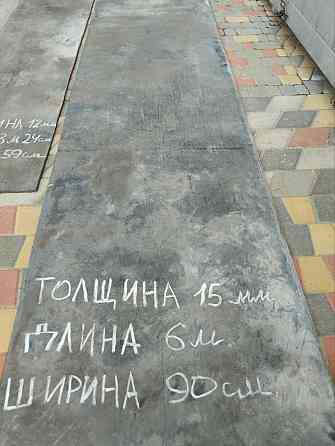 ТОЛЩИНА 15 мм
ДЛИНА 6м
ШИРИНА 90см
НА 12мм
м 24см
59см